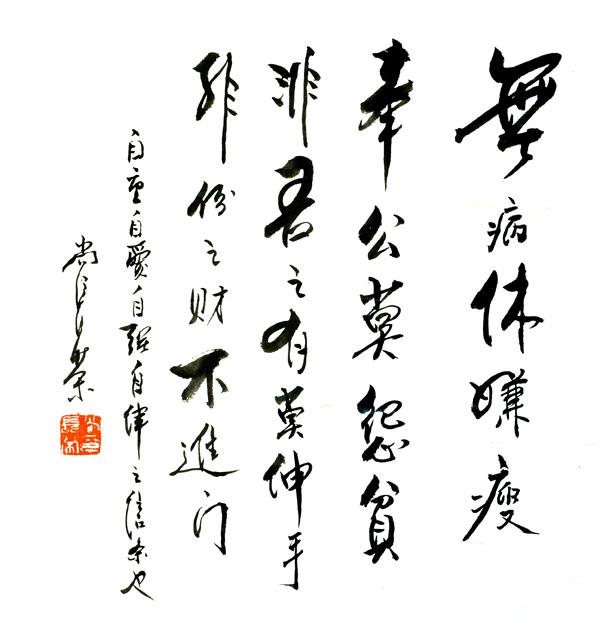 無病休嫌瘦
奉公莫怨貧
非吾之有莫伸手
非份之财不進门
自重自愛自强自律之信条也
尚長榮